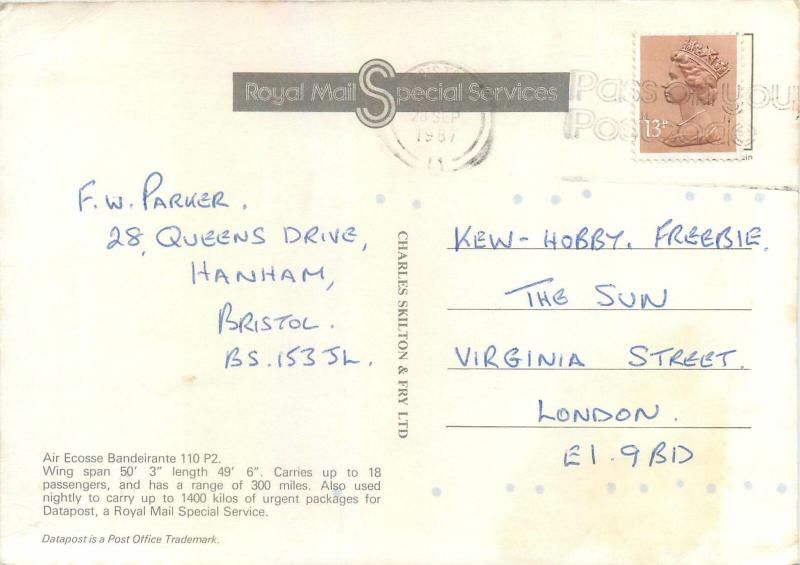 Royal Mail Special Services
28 SEP
1987
Pass on your
Postcode
13P
F.W. PARKER.
28, QUEENS DRIVE,
HANHAM,
BRISTOL.
BS.153JL.
CHARLES SKILTON & FRY LTD
KEW-HOBBY. FREEBIE.
THE SUN
VIRGINIA STREET.
LONDON.
E1.9BD
Air Ecosse Bandeirante 110 P2.
Wing span 50' 3" length 49' 6". Carries up to 18
passengers, and has a range of 300 miles. Also used
nightly to carry up to 1400 kilos of urgent packages for
Datapost, a Royal Mail Special Service.
Datapost is a Post Office Trademark.